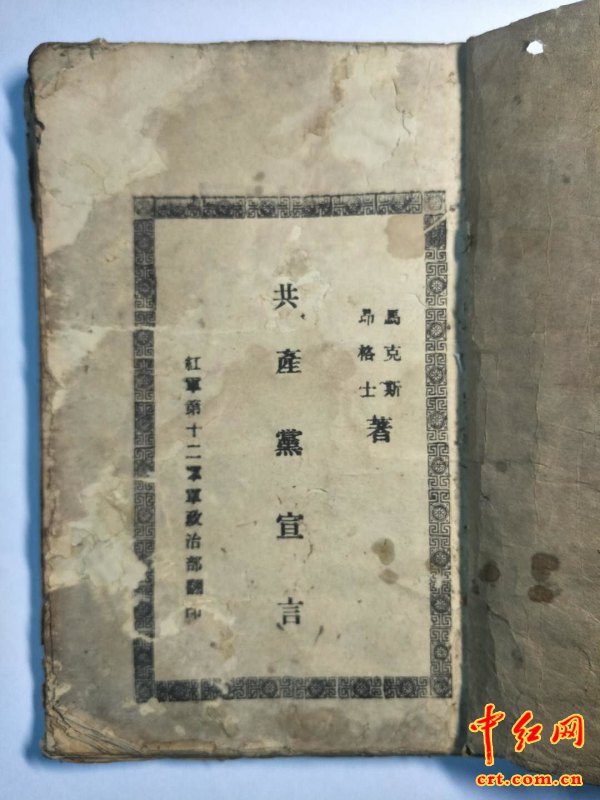 馬克斯
昂格士
著
共產黨宣言
紅軍第十二軍軍政治部翻印
中红网
crt.com.cn